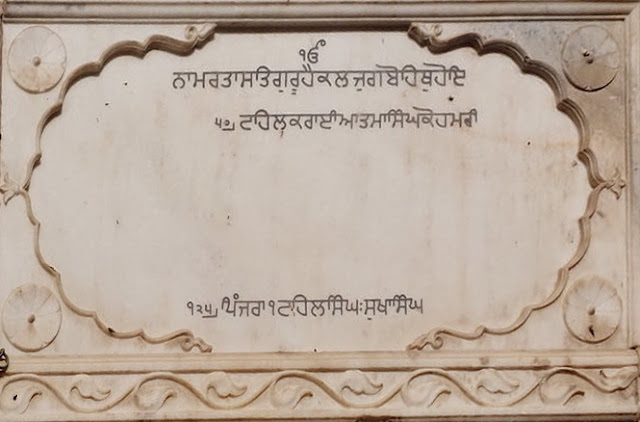 ੴ
ਨਾਮਰਤਾਸਤਿਗੁਰੂਹੈਕਲਜੁਗਬੋਹਿਥੁਹੋਇ
੫੭੍ਰ ਟਹਿਲਕਰਾਈਆਤਮਾਸਿੰਘਕੋਹਮਰੀ
੧੨੫੍ਰ ਪਿੰਜਰਾ੧ਟਹਿਲਸਿੰਘਃਸੁਖਾਸਿੰਘ